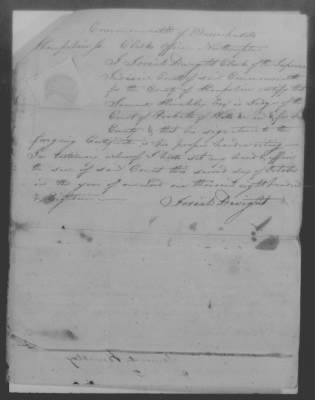 Commonwealth of Massachusetts
Hampshire ss. Clerks office, Northampton
I Josiah Dwight Clerk of the Supreme
Judicial Court of said Commonwealth
for the County of Hampshire certify that
Samuel Hinckley Esqr is Judge of the
Court of Probate of Wills &c in & for said
County & that his signature to the
foregoing Certificate is his proper hand writing
In testimony whereof I hereto set my hand & affix
the seal of said Court this second day of October
in the year of our Lord one thousand eight hundred
& Eighteen
Josiah Dwight
Samuel Hinckley